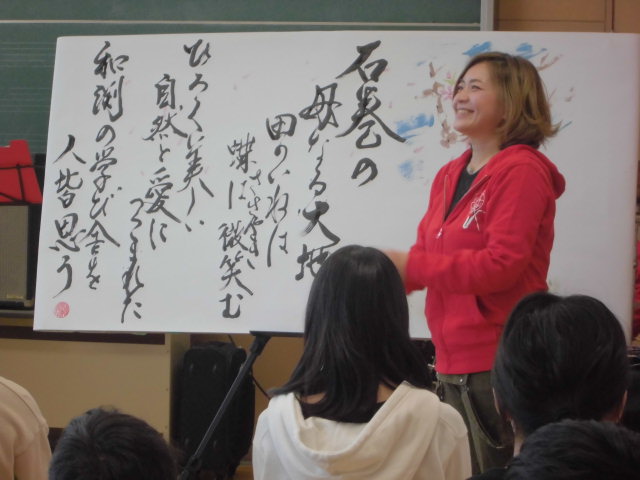 石巻の
母なる大地
田のいねは
微笑む
美しい
自然と愛に
つつまれた
和渕の学び舎を
人皆思う